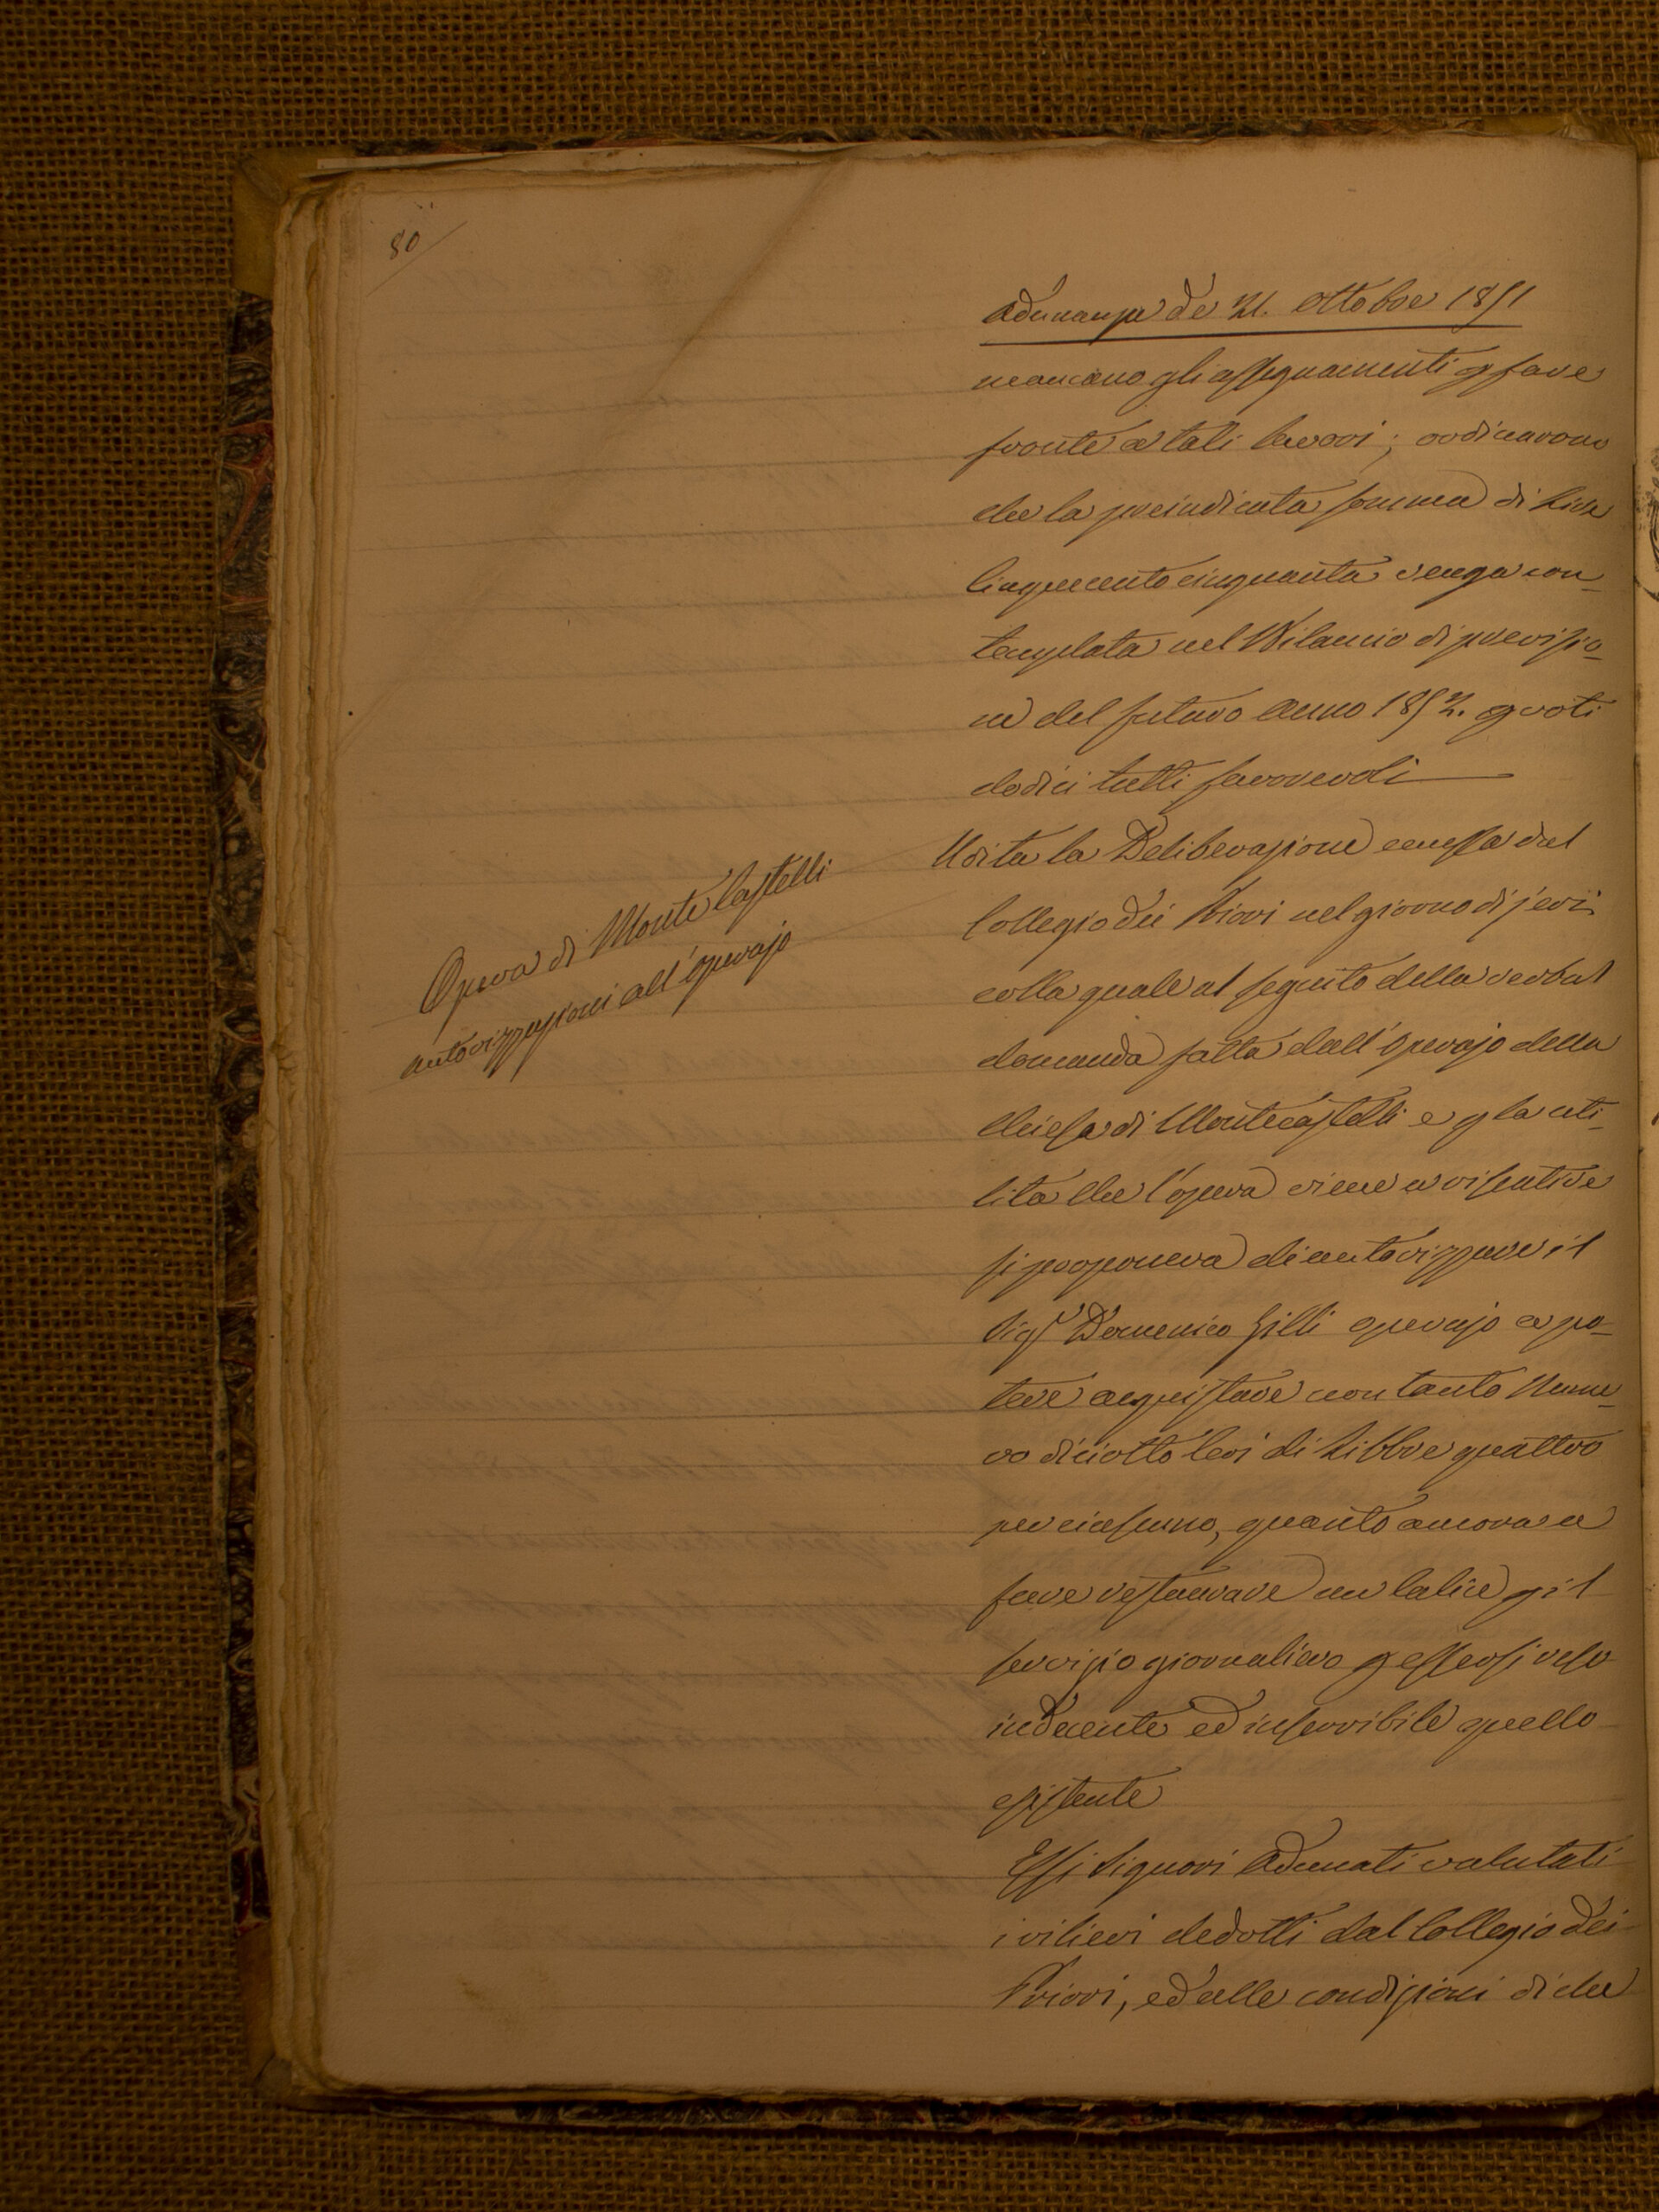 80
Adunanza de 21. Ottobre 1851
mancano gli assegnamenti p fare
fronte a tali lavori; ordinarono
che la preindicata somma di Lire
Cinquecento cinquanta venga con_
templata nel Bilancio di previsio_
ne del futuro Anno 1852. p voti
dodici tutti favorevoli
Opera di Monte Castelli
autorizzazioni all'Operajo
Udita la Deliberazione emessa dal
Collegio dei Priori nel giorno di jeri
colla quale al seguito della verbal
domanda fatta dall'Operajo della
Chiesa di Montecastelli e p la uti_
lità che l'opera viene a risentire
si proponeva di autorizzare il
Sigr Domenico Gilli operajo a po_
tere acquistare non tanto Nume_
ro diciotto Ceri di Libbre quattro
per ciascuno, quanto ancora a
fare restaurare un Calice p il
servizio giornaliero p essersi reso
indecente ed inservibile quello
esistente
Essi Signori Adunati valutati
i rilievi dedotti dal Collegio dei
Priori, ed alle condizioni di che